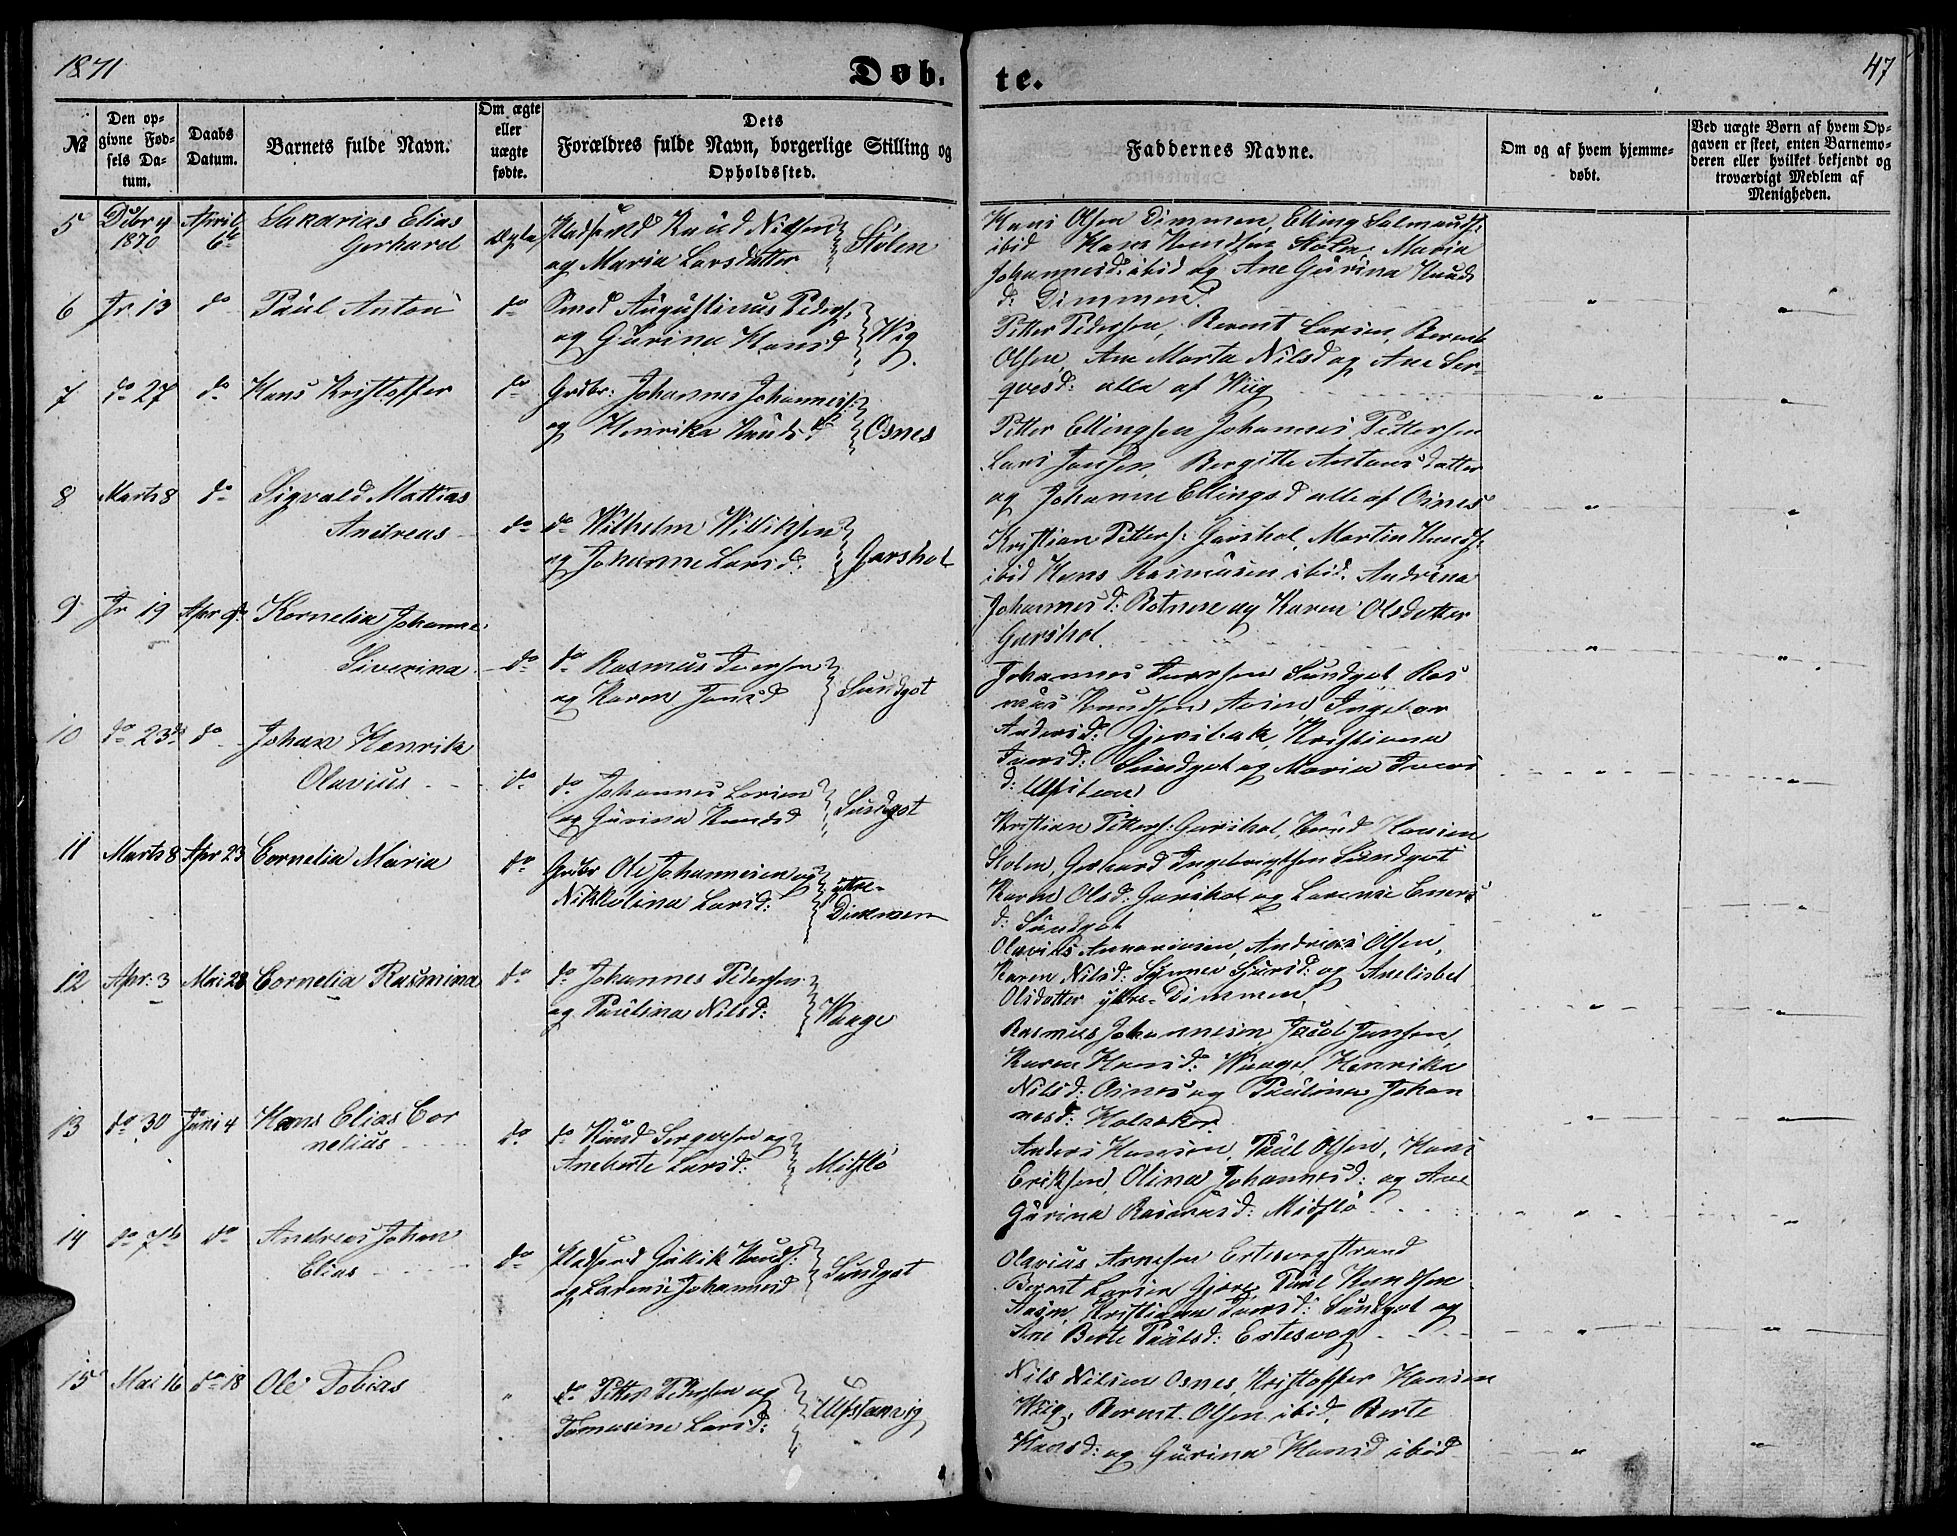 1871
Døb.
te.
47
№
Den op-
givne Fød-
sels Da-
tum.
Daabs
Datum.
Barnets fulde Navn.
Om ægte
eller
uægte
fødte.
Dets
Forældres fulde Navn, borgerlige Stilling og
Opholdssted.
Faddernes Navne.
Om og af hvem hjemme-
døbt.
Ved uægte Børn af hvem Op-
gaven er skeet, enten Barnemo-
deren eller hvilket bekjendt og
troværdigt Medlem af
Menigheden.
5 Dcbr 4 April
1870 6te
Sakarias Elias
Gerhard
Ægte
Knud Nilsen
og Maria Larsdatter
Stølen
Hans Olsen Dimmen, Elling
ibid Hans Knudsen Stølen, Maria
Johannesd: ibid og Ane Gurina Knuds
d: Dimmen.
6 Jr. 13 do Paul Anton do Smed Augustinus Peders:
og Gurina Hansd Wig.
Petter Pedersen, Bernt Larsen, Bernt
Olsen, Ane Marta Nilsd og Ane Ser-
gvesd: alle af Wiig
7 do 27 do Hans Kristoffer do Grdbr: Johannes Johanness:
og Henrika Knudsd Osnes
Petter Ellingsen Johannes Pettersen
Lars Jonsen, Bergitte Antonsdatter
og Johanne Ellingsd alle af Osnes
8 Marts 8 do Sigvald Mattias
Andreas do do Wilhelm Williksen
og Johanne Larsd. Garshol
Kristian Petters: Garshol, Martin Knuds:
ibid Hans Rasmusen ibid, Andrina
Johannesd: Botnen og Karen Olsdatter
Garshol
9 Jr 19 Apr 9de Kornelia Johanne
Siverina do do Rasmus Iversen
og Karen Jonsd Sundgot
Johannes Iversen Sundgot Ras
mus Knudsen Aasen, Ingebor
Andersd: Gjersbak, Kristiana
Iversd: Sundgot og Maria Ivers
d: Ulfsteen
10 do 23de do Johan Henrik
Olavius do do Johannes Larsen
og Gurina Knudsd Sundgot
Kristian Petters: Garshol, Knud Hansen
Stølen, Gerhard Ingebrigtsen Sundgot
Karen Olsd: Garshol og Lorense Einers
d: Sundgot
11 Marts 8 Apr 23 Cornelia Maria do Grdbr Ole Johannesen og
Nikkolina Larsd: ittre-
Dimmen
Olavius Amariusen, Andreas Olsen,
Karen Nilsd: Synnev Sjursd: og Anelisbet
Olsdatter yttre-Dimmen
12 Apr: 3 Mai 28 Cornelia Rasmina do do Johannes Pedersen
og Paulina Nilsd: Waage
Rasmus Johannesen Jacob Jonsen,
Karen Hansd: Waage, Henrika
Nilsd: Osnes og Paulina Johan
nesd: Holsaker
13 do 30 Juni 4 Hans Elias Cor
nelius do do Knud Sergvesen og
Aneberte Larsd: Midflø
Anders Hansen, Paul Olsen, Hans
Eriksen, Olina Johannesd: og Ane
Gurina Rasmusd: Midflø
14 do 7de do Andreas Johan
Elias do Gullik Knuds:
og Lorense Johannesd Sundgot
Olavius Arnesen Ertesvagstrand
Bernt Larsen Gjøre, Paul Knudsen
Aasen, Kristiana Iversd: Sundgot og
Ane Berte Paulsd: Ertesvag
15 Mai 16 do 18 Ole Tobias " do Petter Pedersen og
Tomasine Larsd: Ulfstenvig
Nils Nilsen Osnes, Kristoffer Hansen
Wiig, Bernt Olsen ibid, Berte
Hansd: og Gurina Hansd ibid